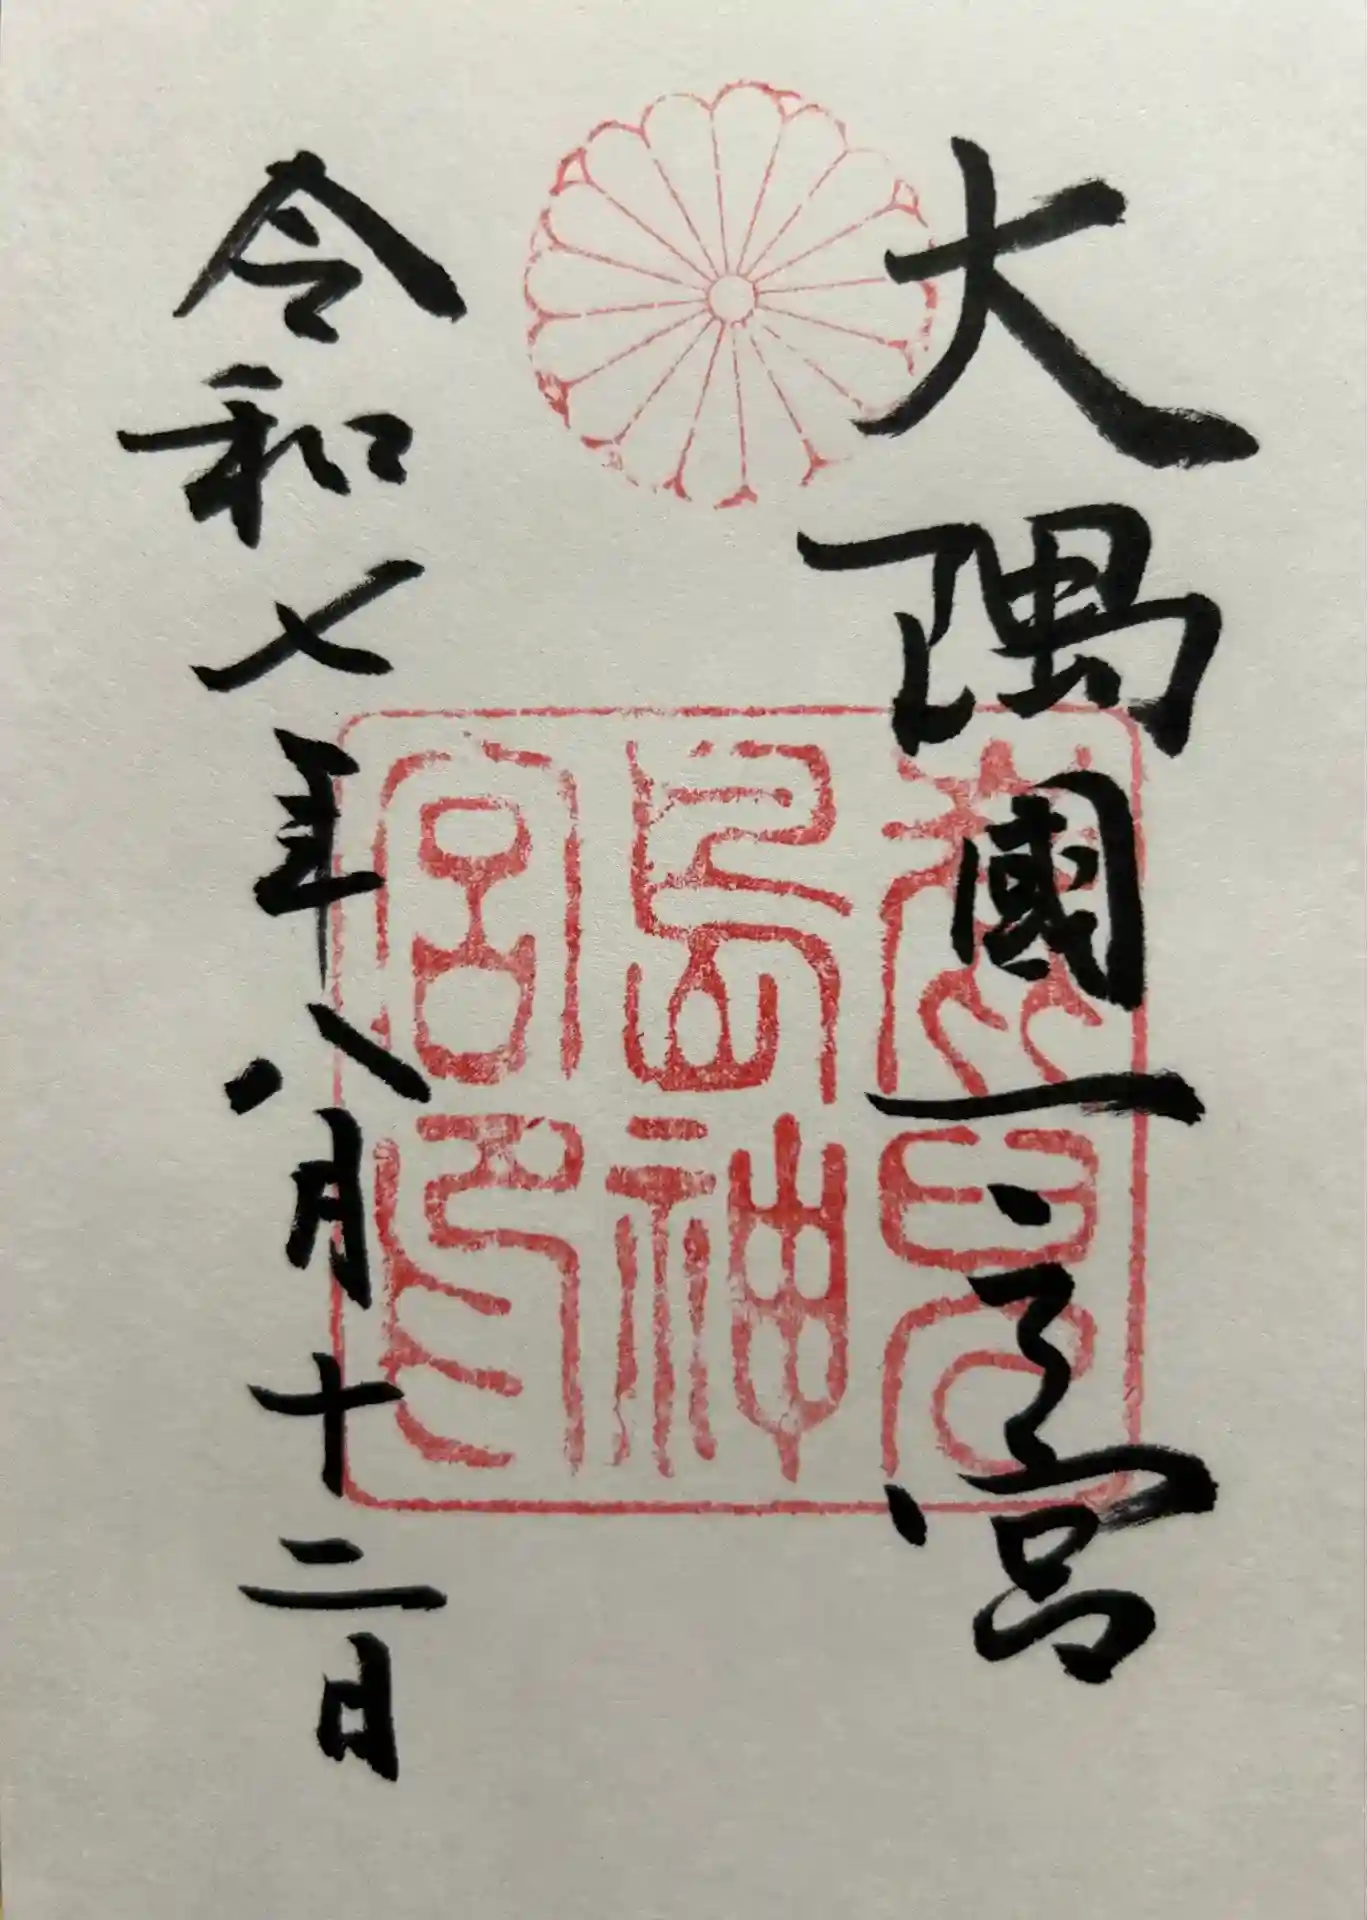 大隅國一之宮
鹿兒島神宮印
令和七年八月十二日